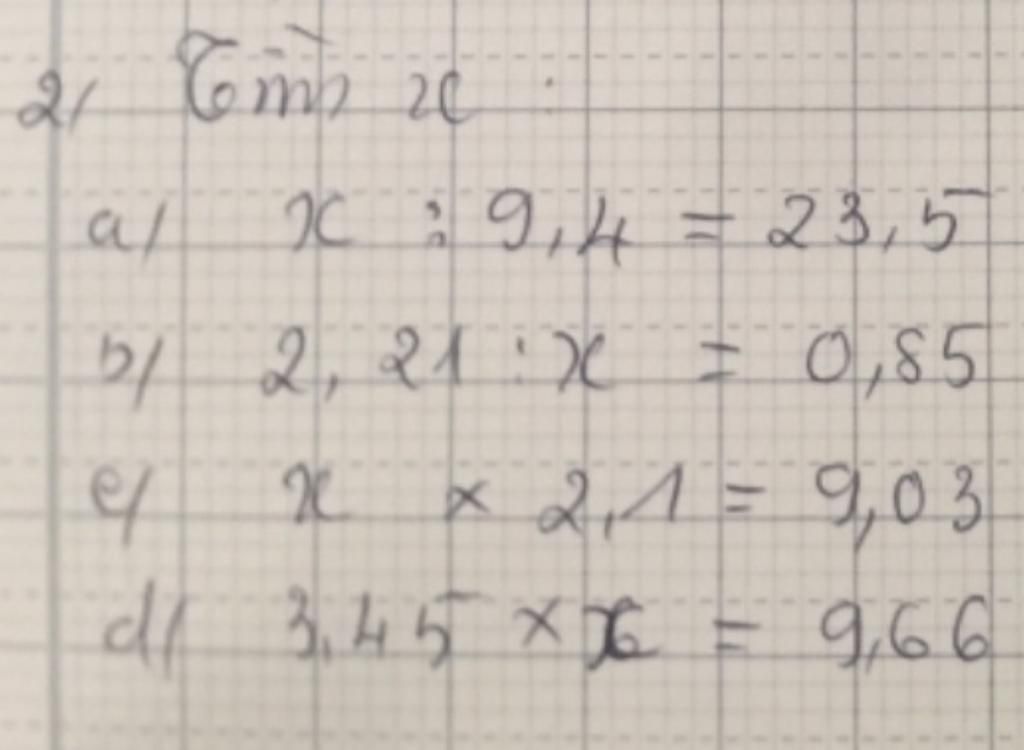 2/ Tìm x :
a/ x : 9,4 = 23,5
b/ 2,21 : x = 0,85
c/ x × 2,1 = 9,03
d/ 3,45 × x = 9,66